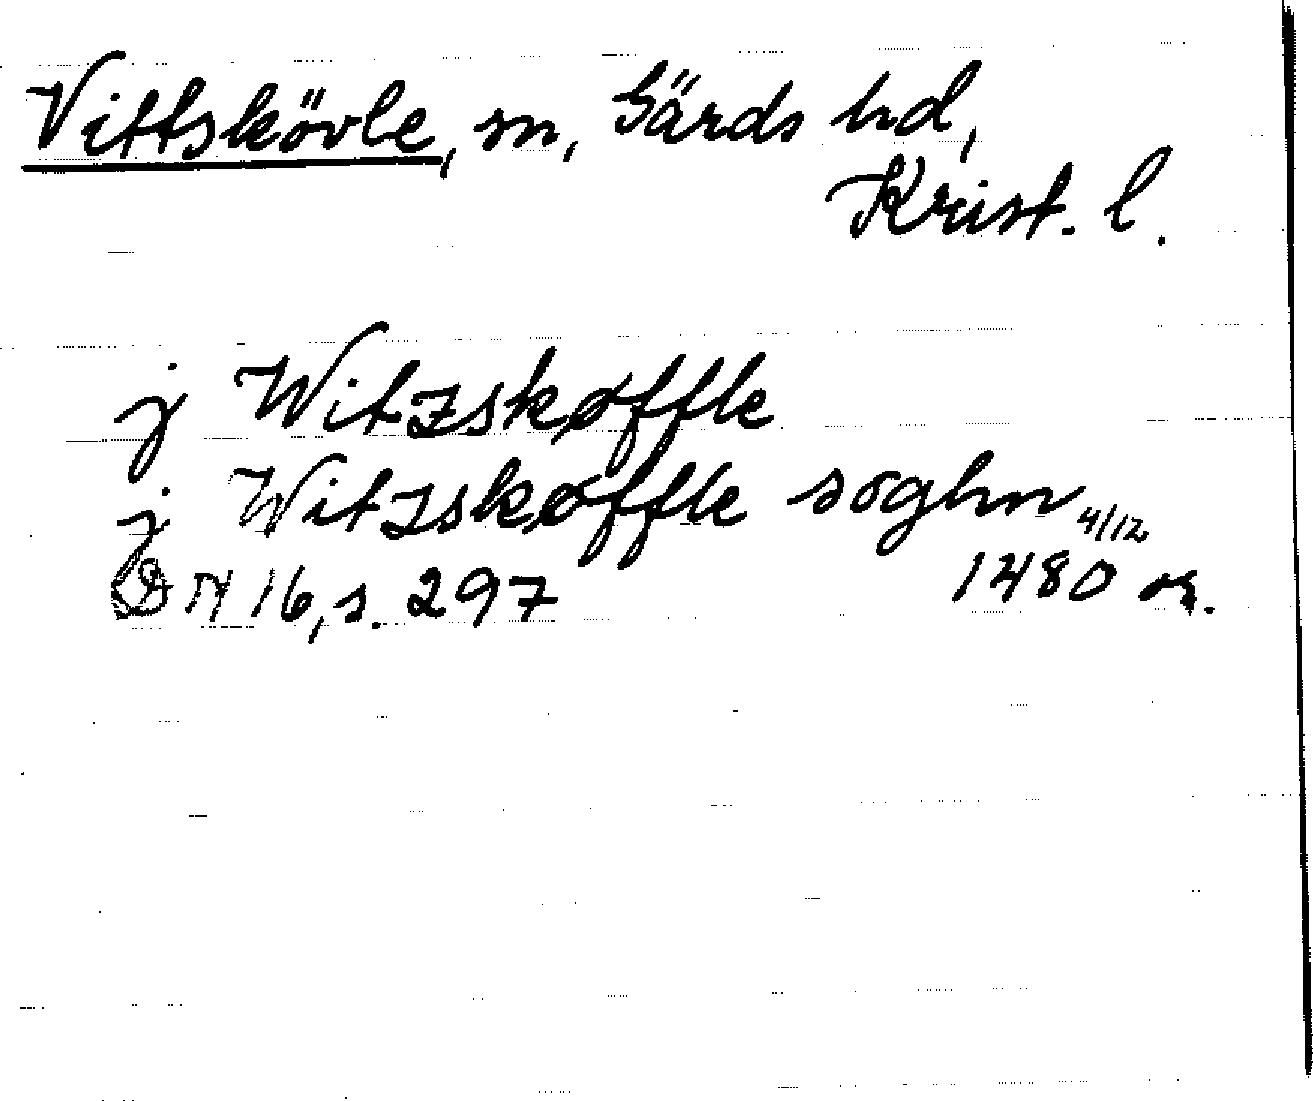 Vittskövle, sn, Gärds hd,
Krist. l.
j Witzskøffle
j Witzskøffle soghn 4/12
DN 16, s. 297 1480 or.